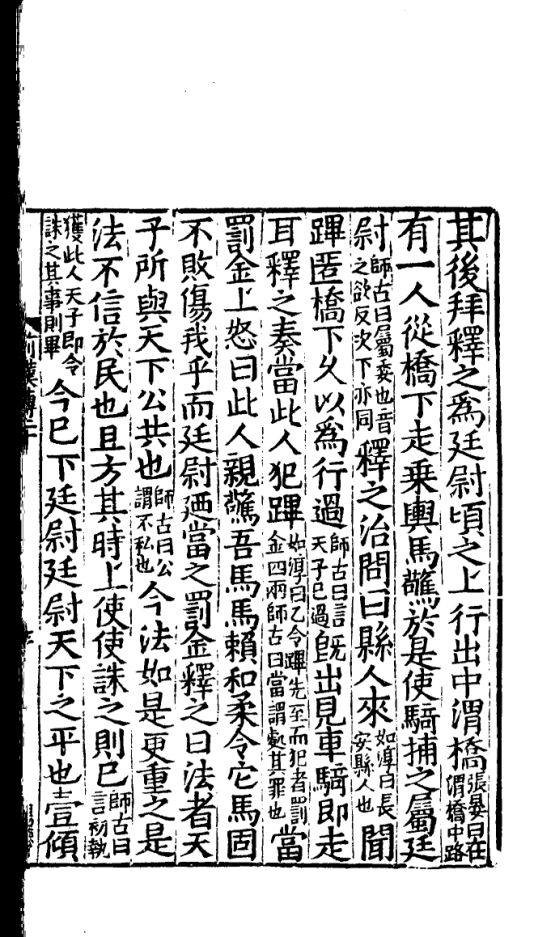 其後拜釋之爲廷尉頃之上行出中渭橋張晏曰在渭橋中路
有一人從橋下走乗輿馬驚於是使騎捕之屬廷
尉師古曰屬委也音之欲反次下亦同釋之治問曰縣人來如淳曰長安縣人也聞
蹕匿橋下久以爲行過師古曰言天子已過旣出見車騎即走
耳釋之奏當此人犯蹕如淳曰乙令蹕先至而犯者罰金四兩師古曰當謂處其罪也當
罰金上怒曰此人親驚吾馬馬賴和柔令它馬固
不敗傷我乎而廷尉廼當之罰金釋之曰法者天
子所與天下公共也師古曰公謂不私也今法如是更重之是
法不信於民也且方其時上使使誅之則已師古曰言初執
獲此人天子即令誅之其事則畢今已下廷尉廷尉天下之平也壹傾
前漢傳二十